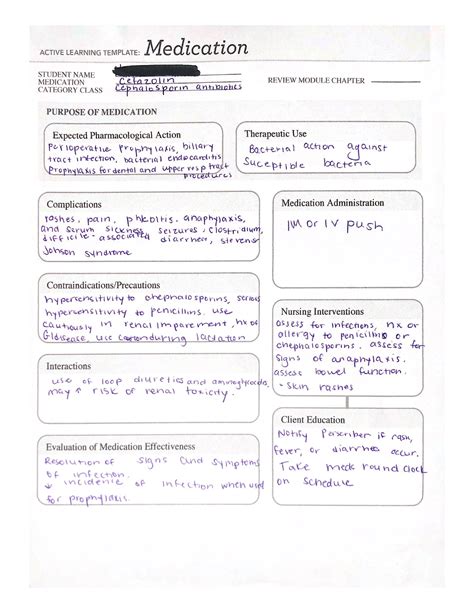 ACTIVE LEARNING TEMPLATE: Medication
STUDENT NAME
MEDICATION Cefazolin
CATEGORY CLASS Cephalosporin antibiotics
REVIEW MODULE CHAPTER
PURPOSE OF MEDICATION
Expected Pharmacological Action
Perioperative prophylaxis, biliary
tract infection, bacterial endocarditis
Prophylaxis for dental and upper resp tract
procedures
Therapeutic Use
Bacterial action against
Suceptible bacteria
Complications
rashes, pain, phlebitis, anaphylaxis,
and serum sickness, seizures, clostridium,
difficile-associated diarrhea, stevens
Johson syndrome
Medication Administration
IM or IV push
Contraindications/Precautions
hypersensitivity to cephalosporins, serious
hypersensitivity to penicillins. use
cautiously in renal impairement, hx of
GI disease, use during lactation
Nursing Interventions
assess for infections, hx or
allergy to penicillins or
cephalosporins. assess for
signs of anaphylaxis.
assess bowel function.
- Skin rashes
Interactions
use of loop diuretics and
may ↑ risk of renal toxicity.
Client Education
Notify Perscriber if rash,
fever, or diarrhea occur.
Take meds round clock
on schedule
Evaluation of Medication Effectiveness
Resolution of signs and symptoms
of infection.
↓ incidence of infection when used
for prophylaxis.